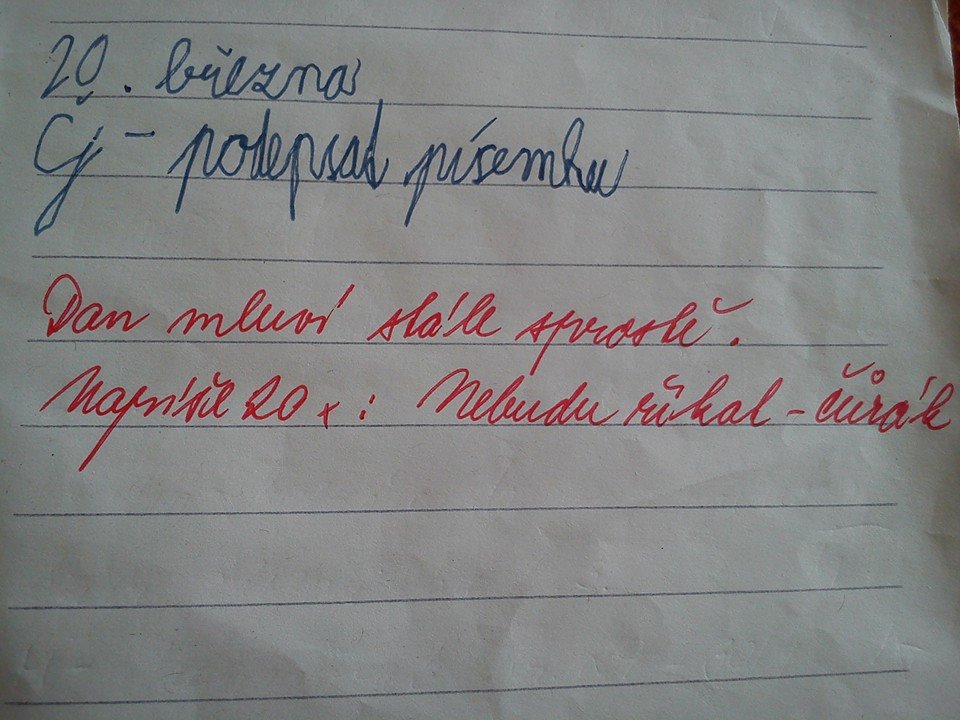 20. března
Čj - podepsat písemku
Dan mluví stále sprostě.
Napíšil 20x: Nebudu říkat - čůrák